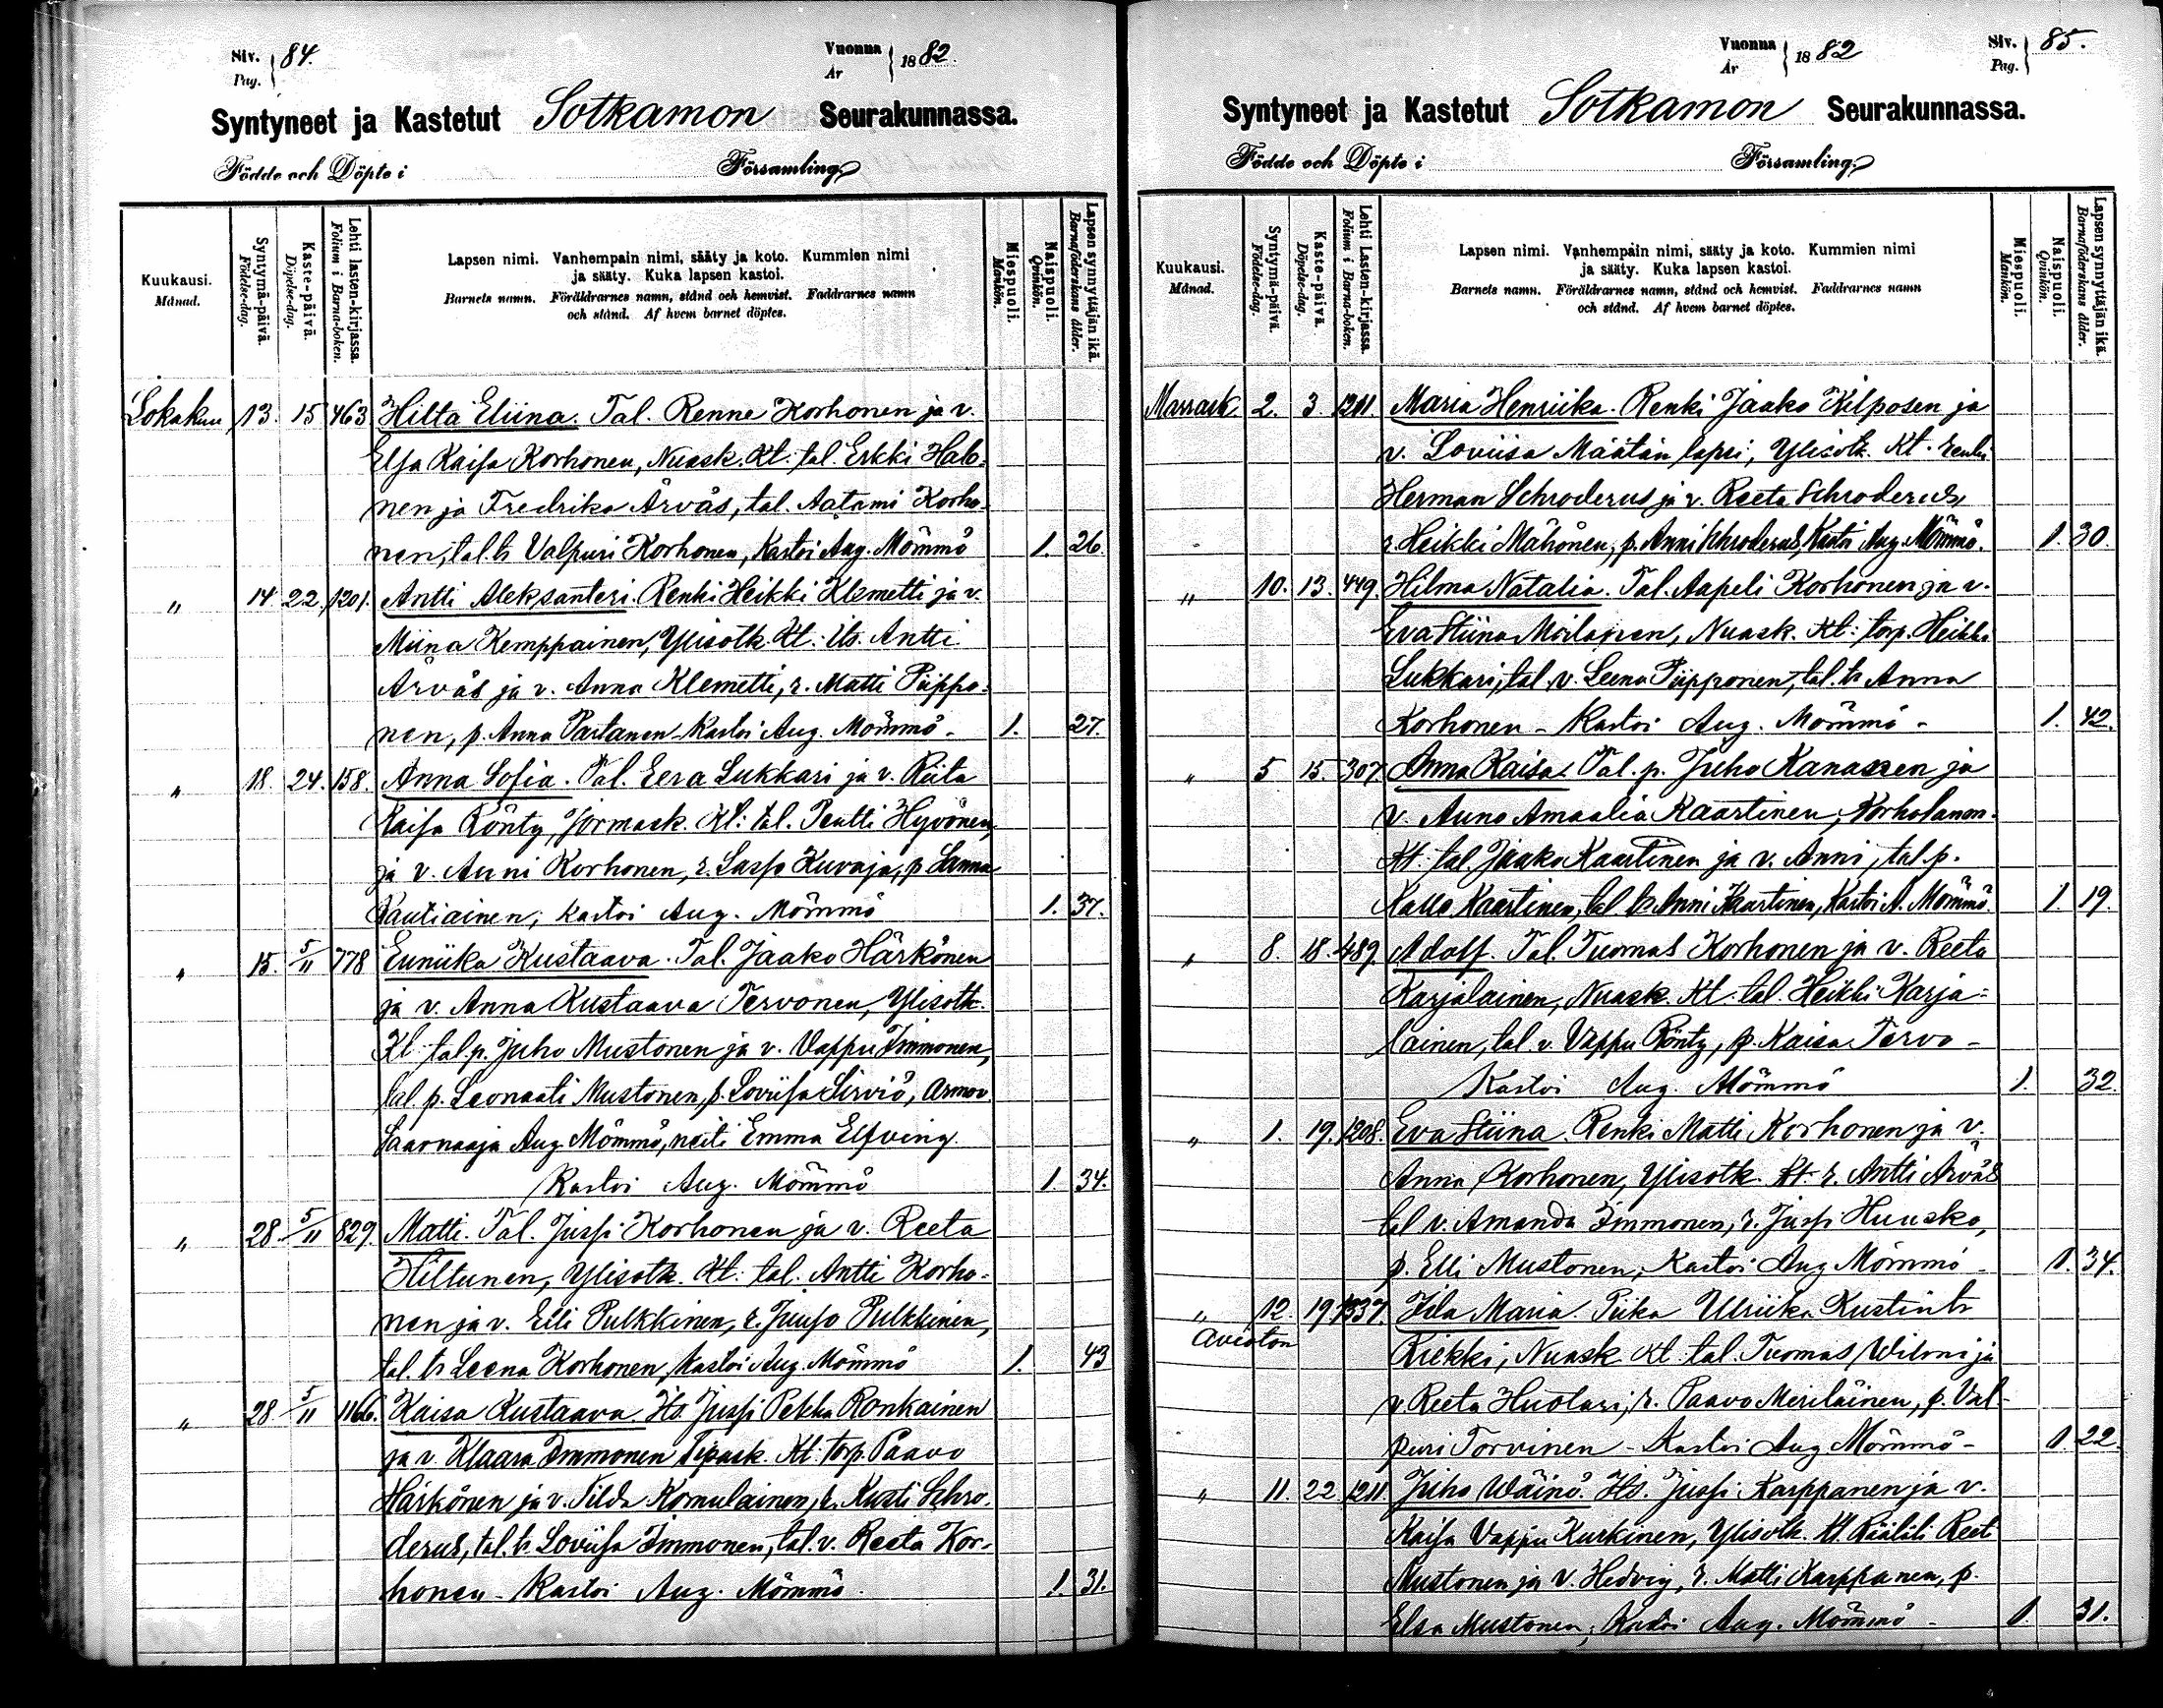 Siv. 84.
Pag.
Vuonna 1882.
År
Syntyneet ja Kastetut Sotkamon Seurakunnassa.
Födde och Döpte i Församling
Kuukausi.
Månad.
Syntymä-päivä.
Födelse-dag.
Kaste-päivä.
Döpelse-dag.
Lehti lasten-kirjassa.
Folium i Barna-boken.
Lapsen nimi. Vanhempain nimi, sääty ja koto. Kummien nimi
ja sääty. Kuka lapsen kastoi.
Barnets namn. Föräldrarnes namn, stånd och hemvist. Faddrarnes namn
och stånd. Af hvem barnet döptes.
Miespuoli.
Mankön.
Naispuoli.
Qvinkön.
Lapsen synnyttäjän ikä.
Barnaföderskans ålder.
Lokakuu 13. 15 463 Hilta Eliina. Tal. Renne Korhonen ja v.
Elsa Kaisa Korhonen, Nuask. Kt: tal. Erkki Halo-
nen ja Fredrika Ärväs, tal. Aatami Korho-
nen, tal. tr Valpuri Korhonen, Kastoi Aug. Mömmö 1. 26.
" 14. 22. 1201. Antti Aleksanteri. Renki Heikki Klemetti ja v.
Miina Kemppainen, Ylisotk. Kt: Its. Antti
Ärväs ja v. Anna Klemetti, r. Matti Piippo-
nen, p. Anna Partanen - Kastoi Aug. Mömmö - 1. 27.
" 18. 24. 158. Anna Sofia. Tal. Eera Lukkari ja v. Riita
Kaisa Rönty, Jormask. Kt: tal. Pentti Hyvönen,
ja v. Anni Korhonen, r. Lasse Kuvaja, p. Sanna
Rautiainen; kastoi Aug. Mömmö 1. 37.
" 15. 5/11 778 Euniika Kustaava. Tal. Jaako Härkönen
ja v. Anna Kustaava Tervonen, Ylisotk.
Kt: tal. p. Juho Mustonen ja v. Vappu Immonen,
tal. p. Leonaati Mustonen, p. Loviisa Sirviö, Armov.
Saarnaaja Aug. Mömmö, neiti Emma Elfving.
Kastoi Aug. Mömmö 1. 34.
" 28. 5/11 829. Matti. Tal. Jussi Korhonen ja v. Reeta
Hiltunen, Ylisotk. Kt: tal. Antti Korho-
nen ja v. Elli Pulkkinen, r. Juuso Pulkkinen,
tal. tr Leena Korhonen, Kastoi Aug. Mömmö 1. 43
" 28 5/11 1166. Kaisa Kustaava. Its. Jussi Pekka Ronkainen
ja v. Klaara Immonen Tipask. Kt: torp. Paavo
Härkönen ja v. Tilda Komulainen, r. Kusti Schro-
derus, tal. tr. Loviisa Immonen, tal. v. Reeta Kor-
honen - Kastoi Aug. Mömmö. 1. 31.
Vuonna 1882
År
Siv. 85.
Pag.
Syntyneet ja Kastetut Sotkamon Seurakunnassa.
Födde och Döpte i Församling
Kuukausi.
Månad.
Syntymä-päivä.
Födelse-dag.
Kaste-päivä.
Döpelse-dag.
Lehti Lasten-kirjassa.
Folium i Barna-boken.
Lapsen nimi. Vanhempain nimi, sääty ja koto. Kummien nimi
ja sääty. Kuka lapsen kastoi.
Barnets namn. Föräldrarnes namn, stånd och hemvist. Faddrarnes namn
och stånd. Af hvem barnet döptes.
Miespuoli.
Mankön.
Naispuoli.
Qvinkön.
Lapsen synnyttäjän ikä.
Barnaföderskans ålder.
Marrask. 2. 3. 1211. Maria Henriika. Renki Jaako Kilposen ja
v. Loviisa Määtän lapsi, Ylisotk. Kt. Renki
Herman Schroderus ja v. Reeta Schroderus,
r. Heikki Mähönen, p. Anni Schroderus, Kastoi Aug. Mömmö. 1. 30.
" 10. 13. 449. Hilma Natalia. Tal. Aapeli Korhonen ja v.
Eva Stiina Moilanen, Nuask. Kt: torp. Heikki
Lukkari, tal. v. Leena Piipponen, tal. tr Anna
Korhonen - Kastoi Aug. Mömmö - 1. 42.
" 5 15. 307. Anna Kaisa. Tal. p. Juho Kanasen ja
v. Auno Amaalia Kaartinen, Korholanm.
Kt: tal. Jaako Kaartinen ja v. Anni, tal. p.
Kalle Kaartinen, tal. tr Anni Kaartinen, Kastoi A. Mömmö. 1. 19.
" 8. 18. 489. Adolf. Tal. Tuomas Korhonen ja v. Reeta
Karjalainen, Nuask. Kt: tal. Heikki Karja-
lainen, tal. v. Vappu Rönty, p. Kaisa Tervo -
Kastoi Aug. Mömmö 1. 32.
" 1. 19. 1208. Eva Stiina. Renki Matti Korhonen ja v.
Anna Korhonen, Ylisotk. Kt: r. Antti Ärväs
tal v. Amanda Immonen, r. Jussi Huusko,
p. Elli Mustonen, Kastoi Aug. Mömmö - 1. 34.
" 12. 19. 1337. Iida Maria. Piika Ulriika Kustintr
Avioton Riekki, Nuask. Kt: tal. Tuomas Wiloni ja
v. Reeta Huotari, r. Paavo Meriläinen, p. Val-
puri Torvinen - Kastoi Aug Mömmö - 1. 22.
" 11. 22. 1211. Juho Wäinö. Its. Jussi Karppanen ja v.
Kaisa Vappu Kurkinen, Ylisotk. Kt. Räätäli Reet
Mustonen ja v. Hedvig, r. Matti Karppanen, p.
Elsa Mustonen, Kastoi Aug. Mömmö - 1. 31.